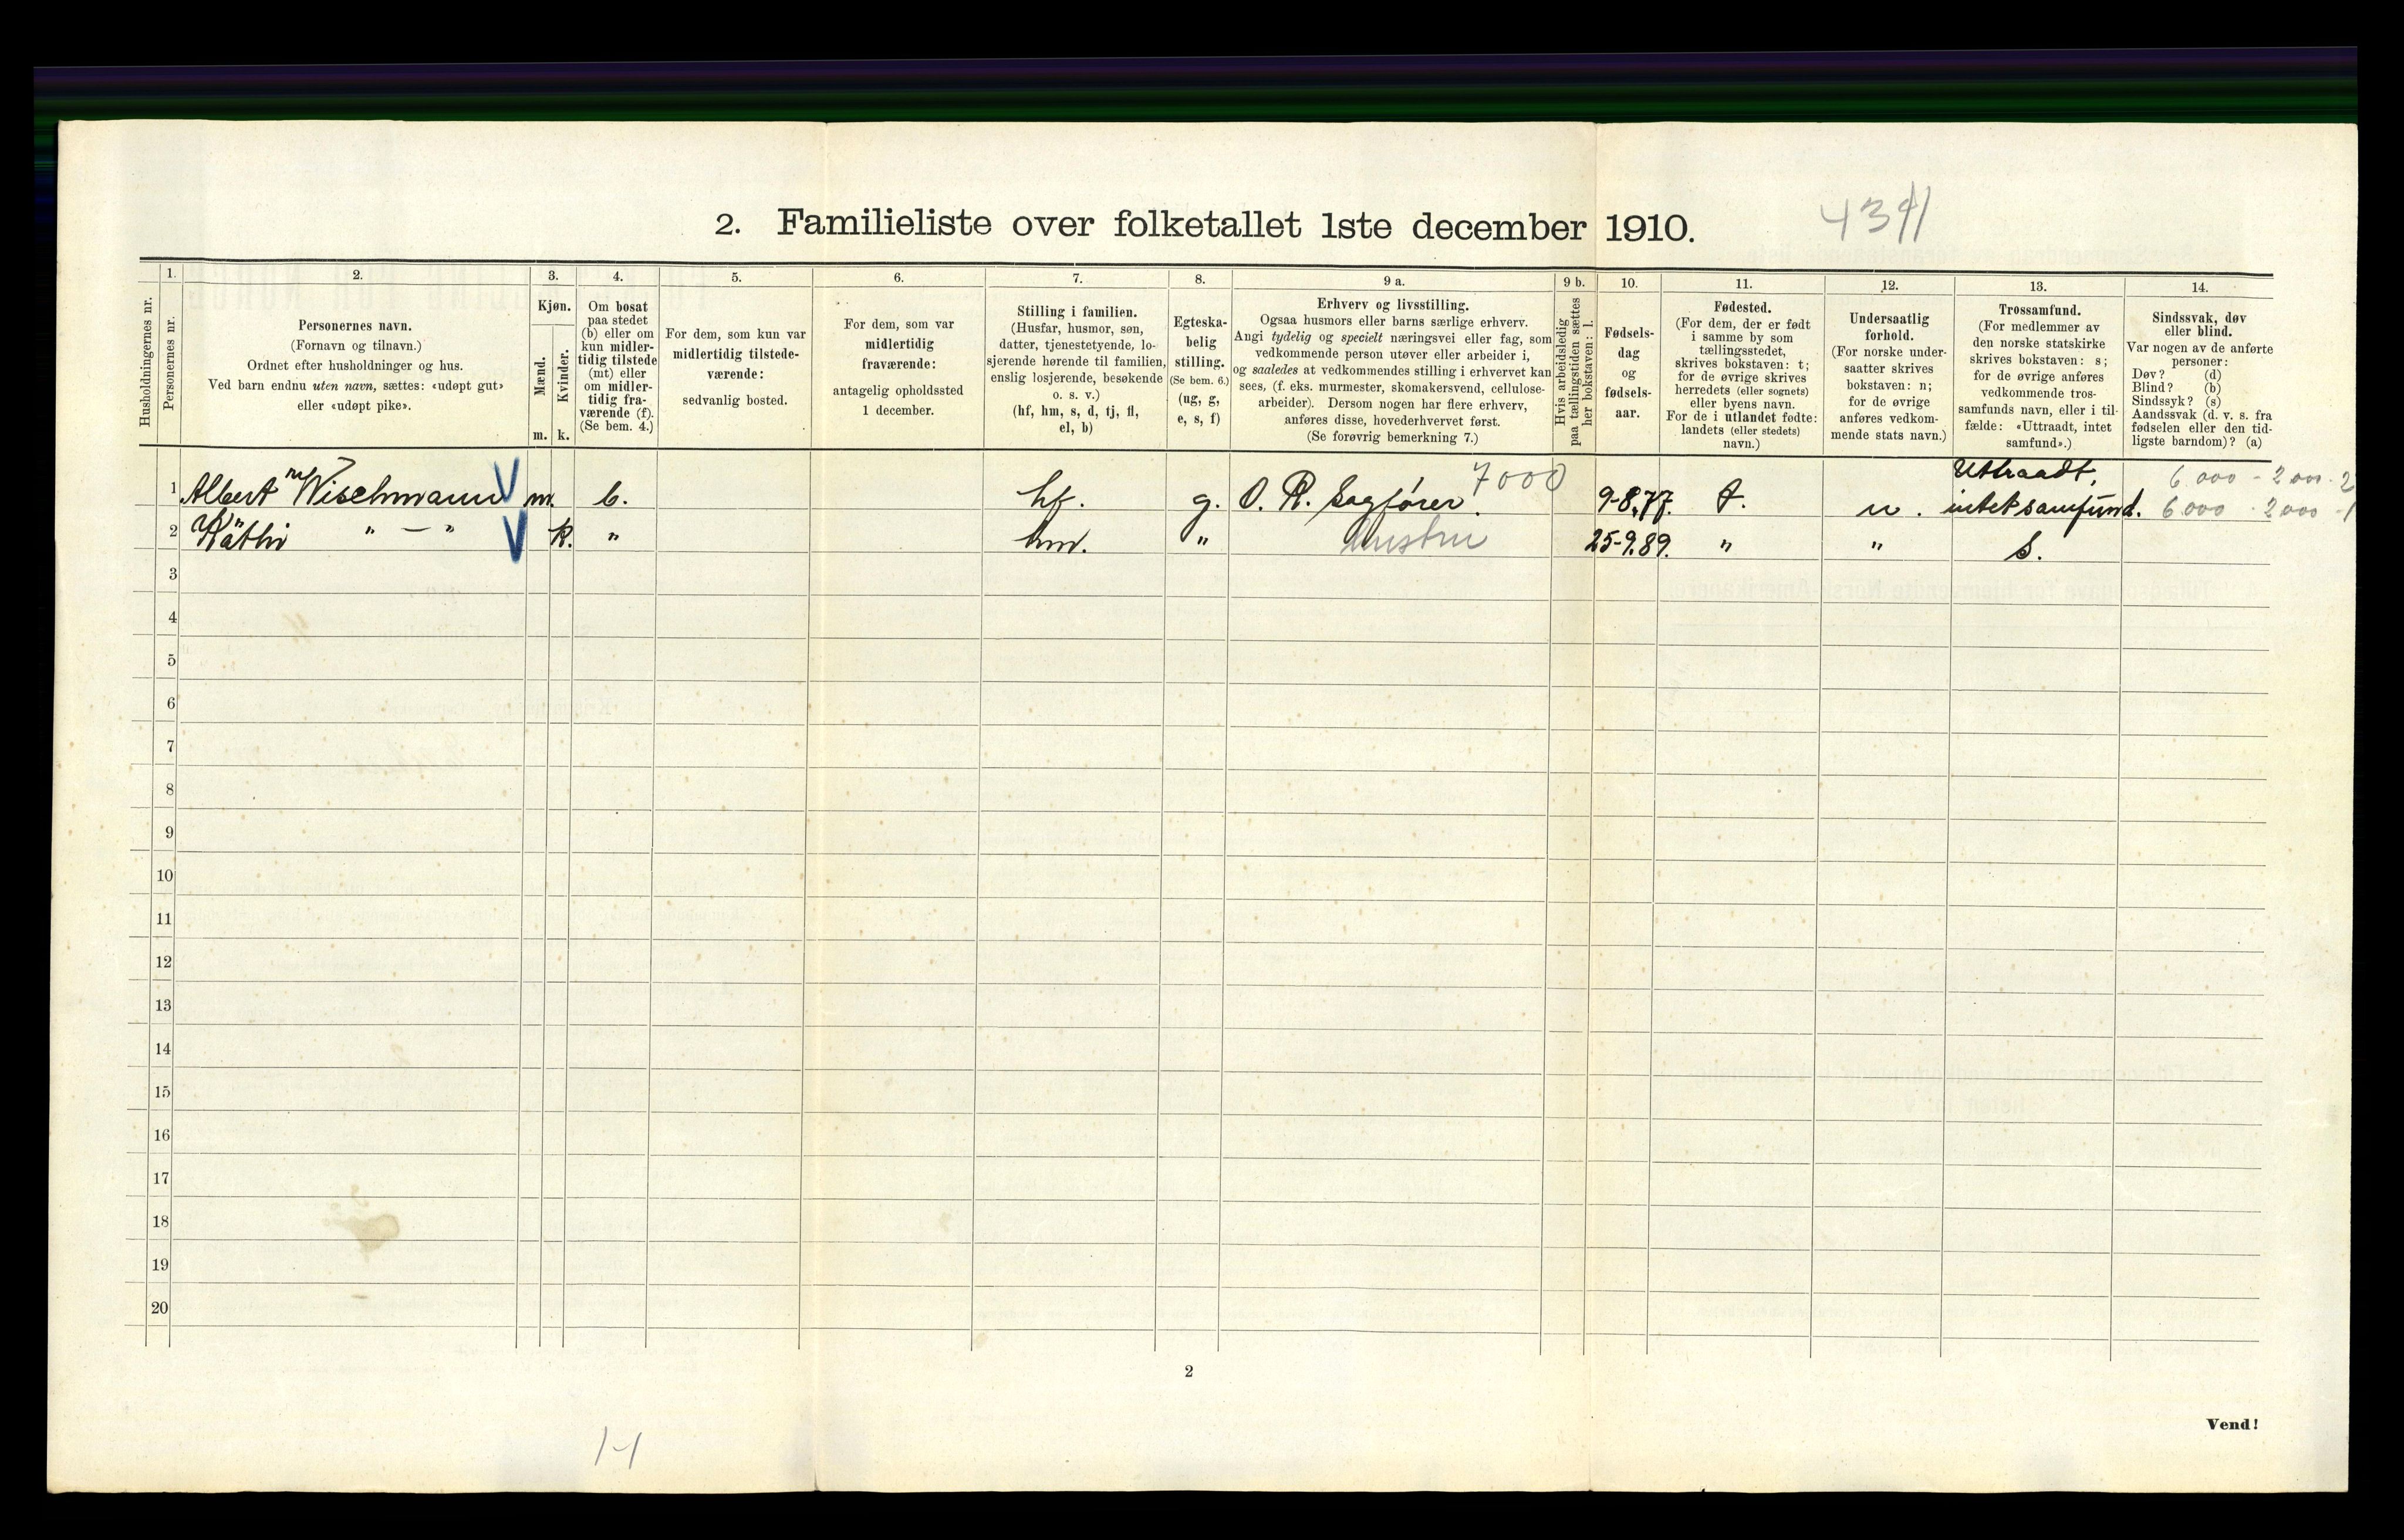 2. Familieliste over folketallet 1ste december 1910.
Husholdningernes nr.
1.
Personernes nr.
2.
Personernes navn.
(Fornavn og tilnavn.)
Ordnet efter husholdninger og hus.
Ved barn endnu uten navn, sættes: «udøpt gut»
eller «udøpt pike».
3.
Kjøn.
Mænd.
Kvinder.
m. k.
4.
Om bosat
paa stedet
(b) eller om
kun midler-
tidig tilstede
(mt) eller
om midler-
tidig fra-
værende (f).
(Se bem. 4.)
5.
For dem, som kun var
midlertidig tilstede-
værende:
sedvanlig bosted.
6.
For dem, som var
midlertidig
fraværende:
antagelig opholdssted
1 december.
7.
Stilling i familien.
(Husfar, husmor, søn,
datter, tjenestetyende, lo-
sjerende hørende til familien,
enslig losjerende, besøkende
o. s. v.)
(hf, hm, s, d, tj, fl,
el, b)
8.
Egteska-
belig
stilling.
(Se bem. 6.)
(ug, g,
e, s, f)
9 a.
Erhverv og livsstilling.
Ogsaa husmors eller barns særlige erhverv.
Angi tydelig og specielt næringsvei eller fag, som
vedkommende person utøver eller arbeider i,
og saaledes at vedkommendes stilling i erhvervet kan
sees, (f. eks. murmester, skomakersvend, cellulose-
arbeider). Dersom nogen har flere erhverv,
anføres disse, hovederhvervet først.
(Se forøvrig bemerkning 7.)
9 b.
Hvis arbeidsledig
paa tællingstiden sættes
her bokstaven: l.
10.
Fødsels-
dag
og
fødsels-
aar.
11.
Fødested.
(For dem, der er født
i samme by som
tællingsstedet,
skrives bokstaven: t;
for de øvrige skrives
herredets (eller sognets)
eller byens navn.
For de i utlandet fødte:
landets (eller stedets)
navn.)
12.
Undersaatlig
forhold.
(For norske under-
saatter skrives
bokstaven: n;
for de øvrige
anføres vedkom-
mende stats navn.)
13.
Trossamfund.
(For medlemmer av
den norske statskirke
skrives bokstaven: s;
for de øvrige anføres
vedkommende tros-
samfunds navn, eller i til-
fælde: «Uttraadt, intet
samfund».)
14.
Sindssvak, døv
eller blind.
Var nogen av de anførte
personer:
Døv? (d)
Blind? (b)
Sindssyk? (s)
Aandssvak (d. v. s. fra
fødselen eller den tid-
ligste barndom)? (a)
1 Albert Wischmann V m. b. hf. g. O. R. Sagfører. 7000 9-8.77. t. n. Uttraadt, intet samfund. 6.000
2 Käthi " — " V k. " hm. " Hustru 25-9.89. " " s. 6.000 2000
3
4
5
6
7
8
9
10
11
12
13
14
15
16
17
18
19
20
2
Vend!